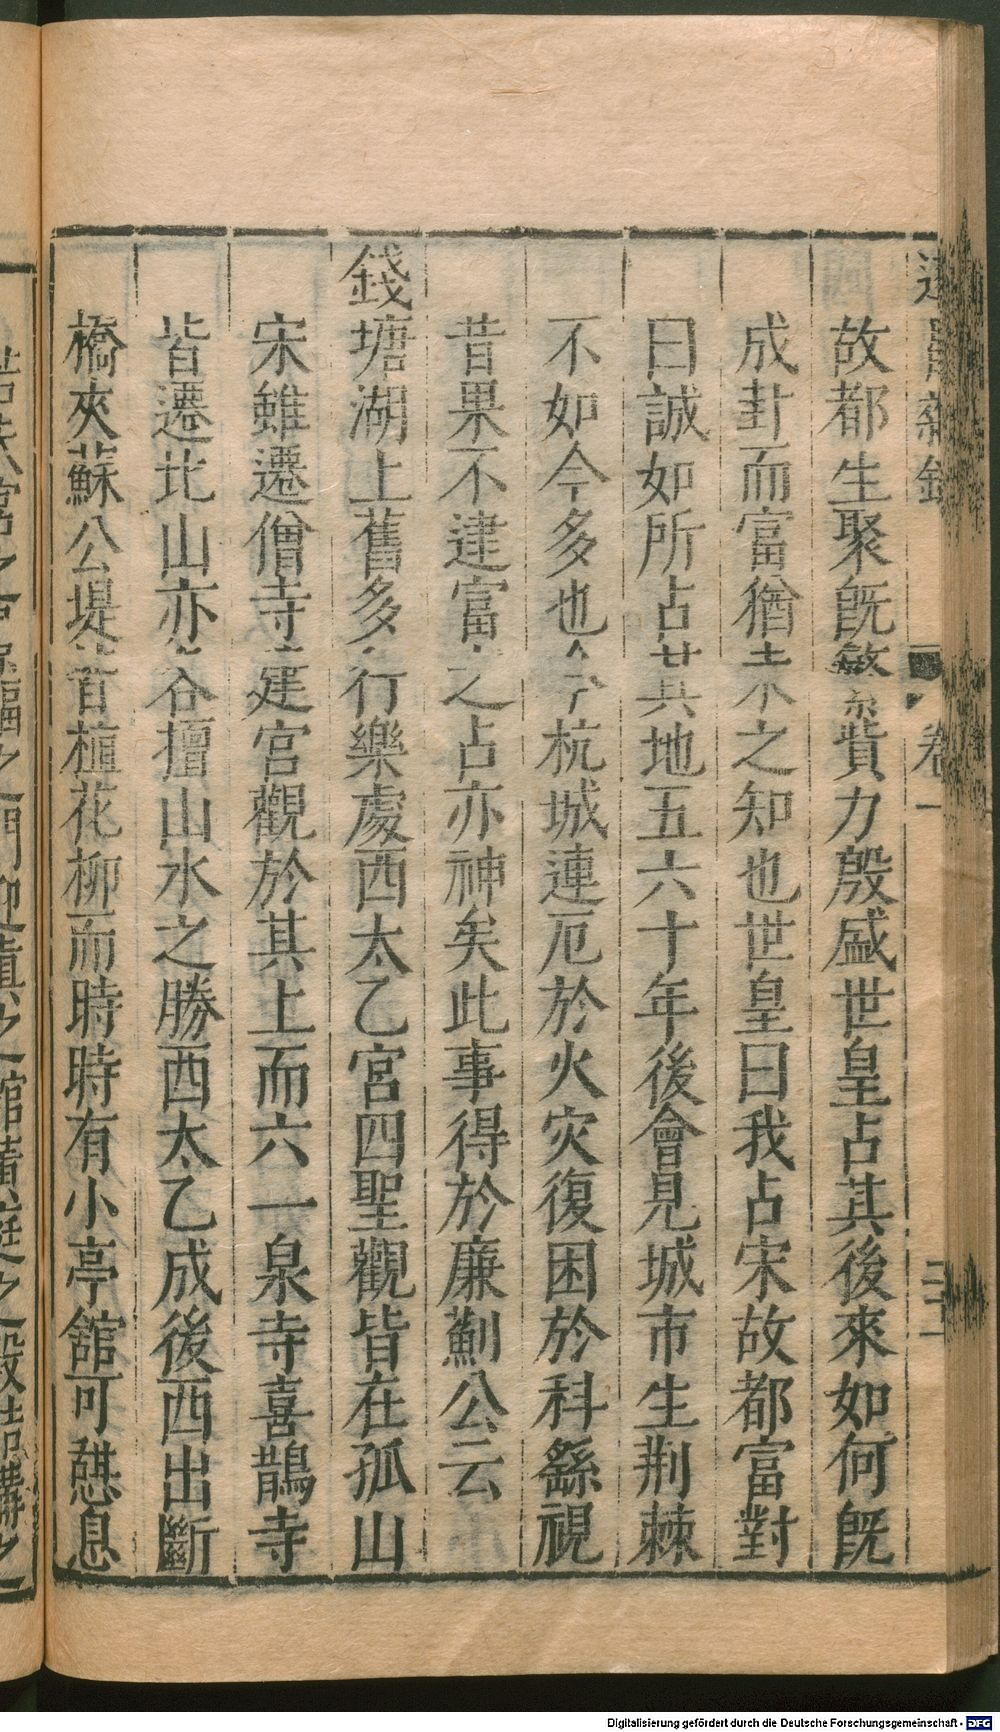 故都生聚旣繁貲力殷盛世皇占其後來如何旣
成封而富猶未之知也世皇曰我占宋故都富對
曰誠如所占其地五六十年後會見城市生荆棘
不如今多也今杭城連厄於火灾復困於科繇視
昔果不逮富之占亦神矣此事得於廉薊公云
錢塘湖上舊多行樂處西太乙宮四聖觀皆在孤山
宋雖遷僧寺建宮觀於其上而六一泉寺喜鵲寺
皆遷北山亦各擅山水之勝西太乙成後西出斷
橋夾蘇公堤皆植花柳而時時有小亭舘可憇息
卷一
Digitalisierung gefördert durch die Deutsche Forschungsgemeinschaft - DFG